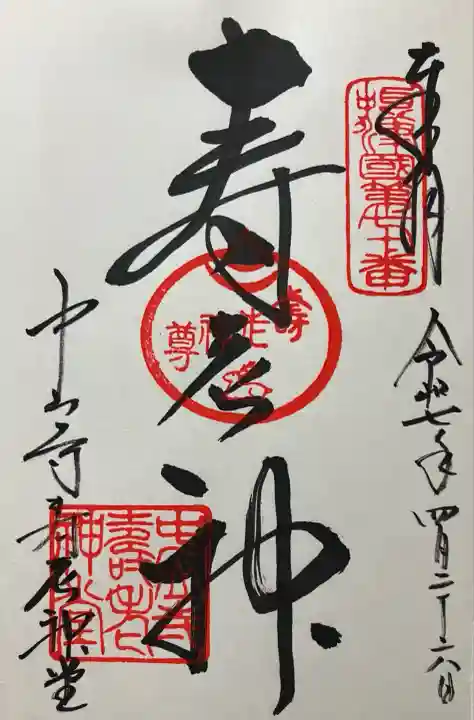 奉拝
攝津國第七十番
令和七年四月二十六日
寿老神
壽老神尊
中山寺寿老神堂
中山寺壽老神堂